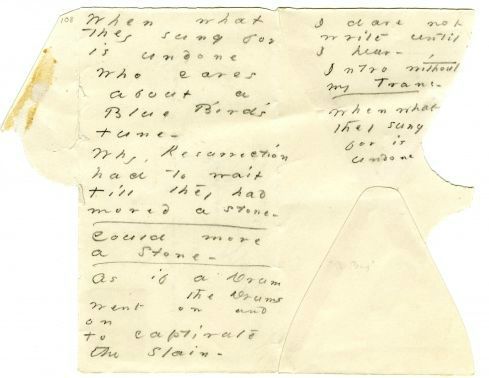 108
When what
they sung for
is undone
Who cares
about a
Blue Bird's
tune -
Why, Resurrection
had to wait
till they had
moved a stone -
Could move
a stone -
As if a Drum
the Drums
went on and
on
to captivate
the slain -
I dare not
write until
I hear -
Intro without
my Trans -
When what
they sung
for is
undone